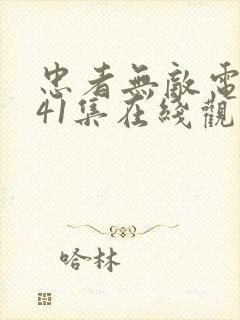 忠者無敵電
41集在綫觀
哈林